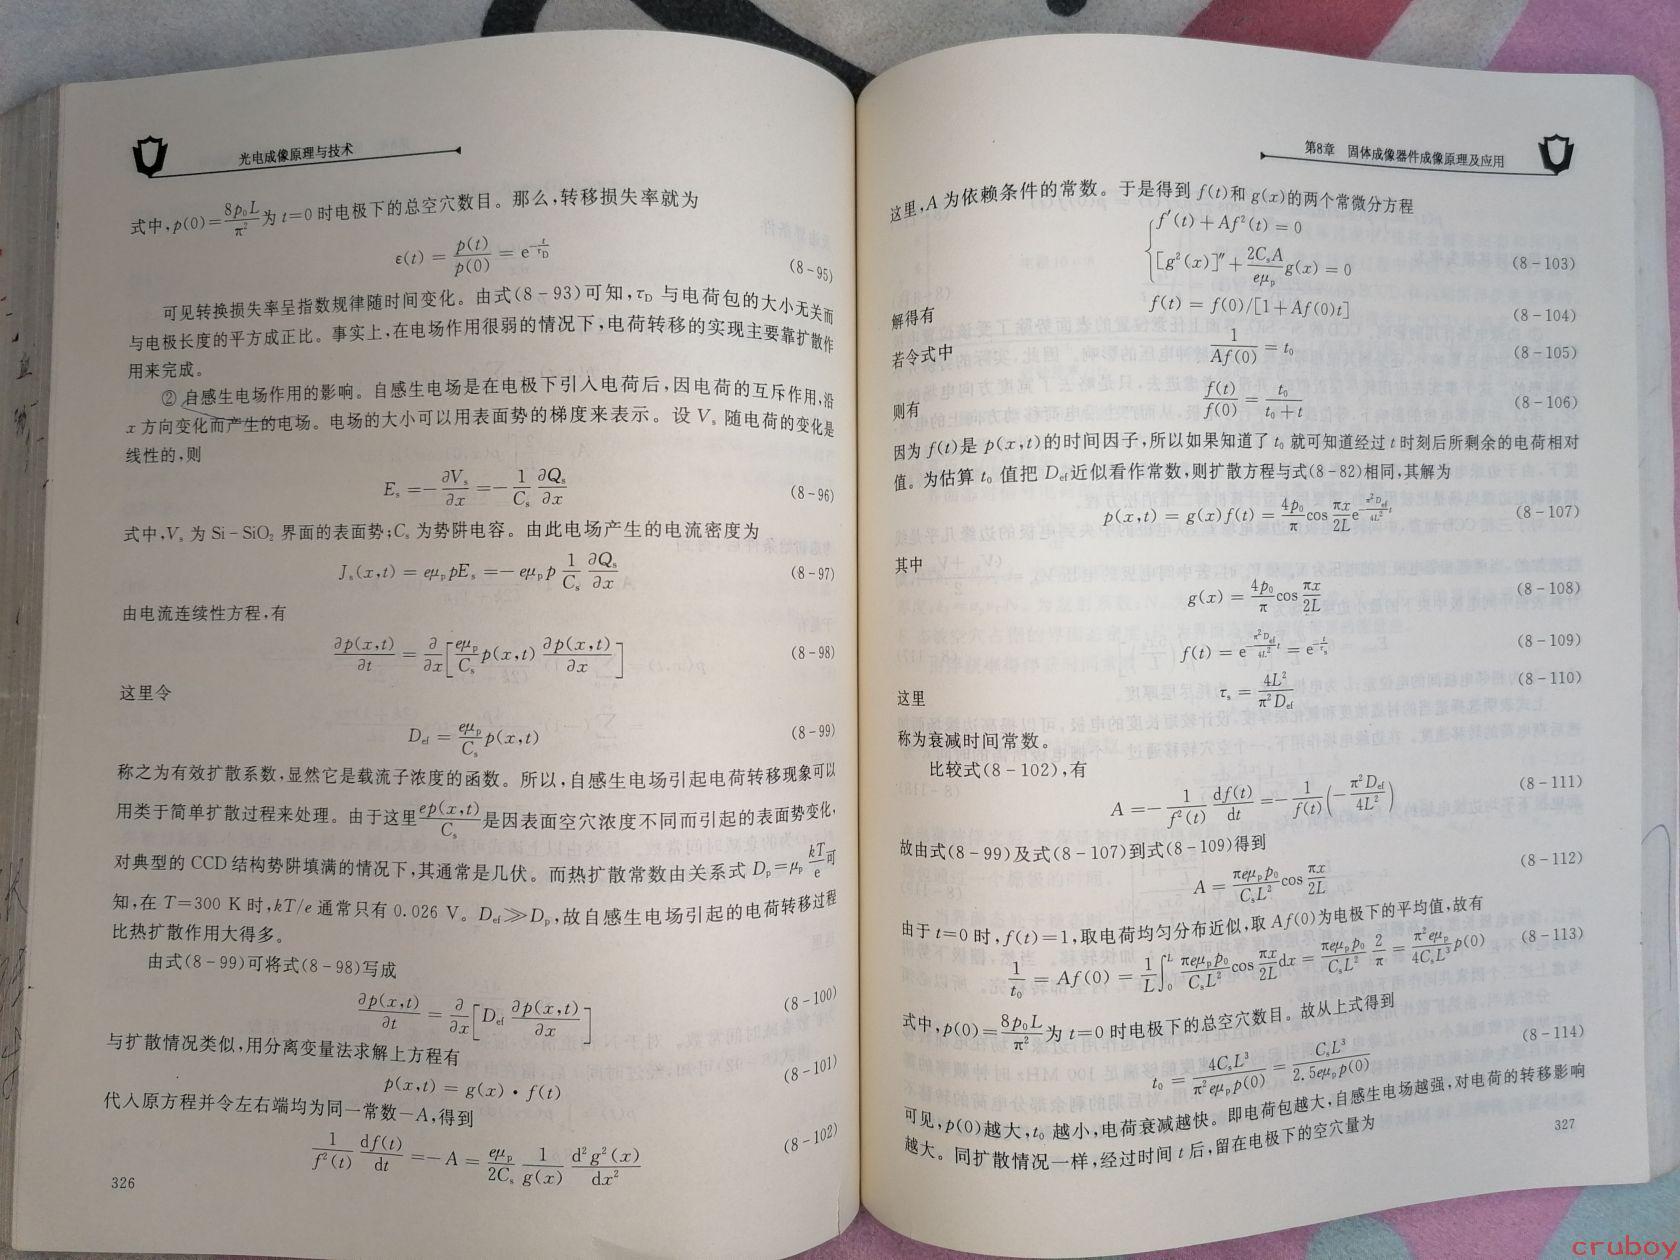 光电成像原理与技术
式中,p(0)=8p₀L/π²为 t=0 时电极下的总空穴数目。那么,转移损失率就为
ε(t) = p(t)/p(0) = e^(-t/τ_D) (8-95)
可见转换损失率呈指数规律随时间变化。由式(8-93)可知,τ_D 与电荷包的大小无关而
与电极长度的平方成正比。事实上,在电场作用很弱的情况下,电荷转移的实现主要靠扩散作
用来完成。
② 自感生电场作用的影响。自感生电场是在电极下引入电荷后,因电荷的互斥作用,沿
x 方向变化而产生的电场。电场的大小可以用表面势的梯度来表示。设 V_s 随电荷的变化是
线性的,则
E_s = -∂V_s/∂x = -(1/C_s)(∂Q_s/∂x) (8-96)
式中,V_s 为 Si-SiO₂ 界面的表面势;C_s 为势阱电容。由此电场产生的电流密度为
J_s(x,t) = eμ_p pE_s = -eμ_p p (1/C_s)(∂Q_s/∂x) (8-97)
由电流连续性方程,有
∂p(x,t)/∂t = ∂/∂x[(eμ_p/C_s)p(x,t) ∂p(x,t)/∂x] (8-98)
这里令
D_ef = (eμ_p/C_s)p(x,t) (8-99)
称之为有效扩散系数,显然它是载流子浓度的函数。所以,自感生电场引起电荷转移现象可以
用类于简单扩散过程来处理。由于这里ep(x,t)/C_s是因表面空穴浓度不同而引起的表面势变化,
对典型的 CCD 结构势阱填满的情况下,其通常是几伏。而热扩散常数由关系式 D_p=μ_p kT/e可
知,在 T=300 K 时,kT/e 通常只有 0.026 V。D_ef≫D_p,故自感生电场引起的电荷转移过程
比热扩散作用大得多。
由式(8-99)可将式(8-98)写成
∂p(x,t)/∂t = ∂/∂x[D_ef ∂p(x,t)/∂x] (8-100)
与扩散情况类似,用分离变量法求解上方程有
p(x,t) = g(x)·f(t) (8-101)
代入原方程并令左右端均为同一常数-A,得到
(1/f²(t))(df(t)/dt) = -A = (eμ_p/2C_s)(1/g(x))(d²g²(x)/dx²) (8-102)
326
第8章 固体成像器件成像原理及应用
这里,A 为依赖条件的常数。于是得到 f(t)和 g(x)的两个常微分方程
{f′(t)+Af²(t) = 0
[g²(x)]″+(2C_sA/eμ_p)g(x) = 0 (8-103)
解得有 f(t) = f(0)/[1+Af(0)t] (8-104)
若令式中 1/Af(0) = t₀ (8-105)
则有 f(t)/f(0) = t₀/(t₀+t) (8-106)
因为 f(t)是 p(x,t)的时间因子,所以如果知道了 t₀ 就可知道经过 t 时刻后所剩余的电荷相对
值。为估算 t₀ 值把 D_ef近似看作常数,则扩散方程与式(8-82)相同,其解为
p(x,t) = g(x)f(t) = (4p₀/π)cos(πx/2L)e^(-(π²D_ef/4L²)t) (8-107)
其中
g(x) = (4p₀/π)cos(πx/2L) (8-108)
f(t) = e^(-(π²D_ef/4L²)t) = e^(-t/τ_s) (8-109)
这里 τ_s = 4L²/π²D_ef (8-110)
称为衰减时间常数。
比较式(8-102),有
A = -(1/f²(t))(df(t)/dt) = -(1/f(t))(-π²D_ef/4L²) (8-111)
故由式(8-99)及式(8-107)到式(8-109)得到
A = (πeμ_p p₀/C_sL²)cos(πx/2L) (8-112)
由于 t=0 时,f(t)=1,取电荷均匀分布近似,取 Af(0)为电极下的平均值,故有
1/t₀ = Af(0) = (1/L)∫₀^L (πeμ_p p₀/C_sL²)cos(πx/2L)dx = (πeμ_p p₀/C_sL²)(2/π) = (π²eμ_p/4C_sL³)p(0) (8-113)
式中,p(0)=8p₀L/π²为 t=0 时电极下的总空穴数目。故从上式得到
t₀ = 4C_sL³/π²eμ_p p(0) = C_sL³/2.5eμ_p p(0) (8-114)
可见,p(0)越大,t₀ 越小,电荷衰减越快。即电荷包越大,自感生电场越强,对电荷的转移影响
越大。同扩散情况一样,经过时间 t 后,留在电极下的空穴量为
327
cruboy